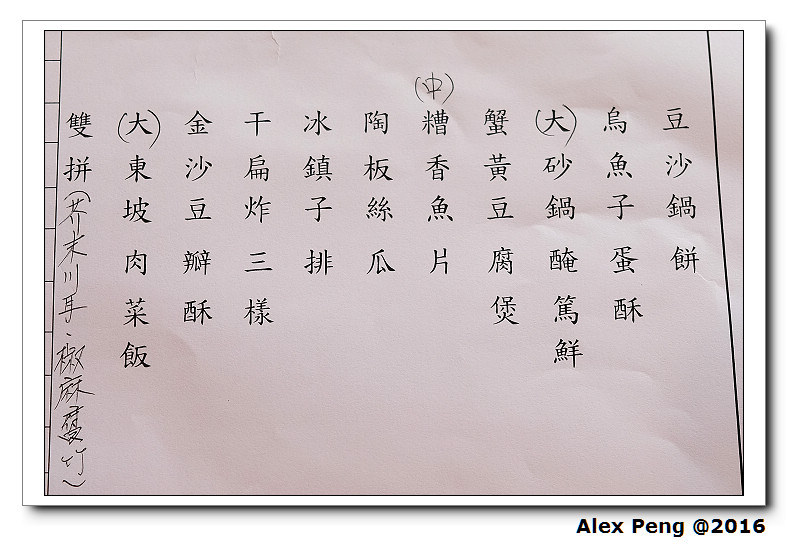 豆沙鍋餅
烏魚子蛋酥
(大)砂鍋醃篤鮮
蟹黃豆腐煲
(中)糟香魚片
陶板絲瓜
冰鎮子排
干扁炸三樣
金沙豆瓣酥
(大)東坡肉菜飯
雙拼(芥末川耳、椒麻腐竹)
Alex Peng @2016